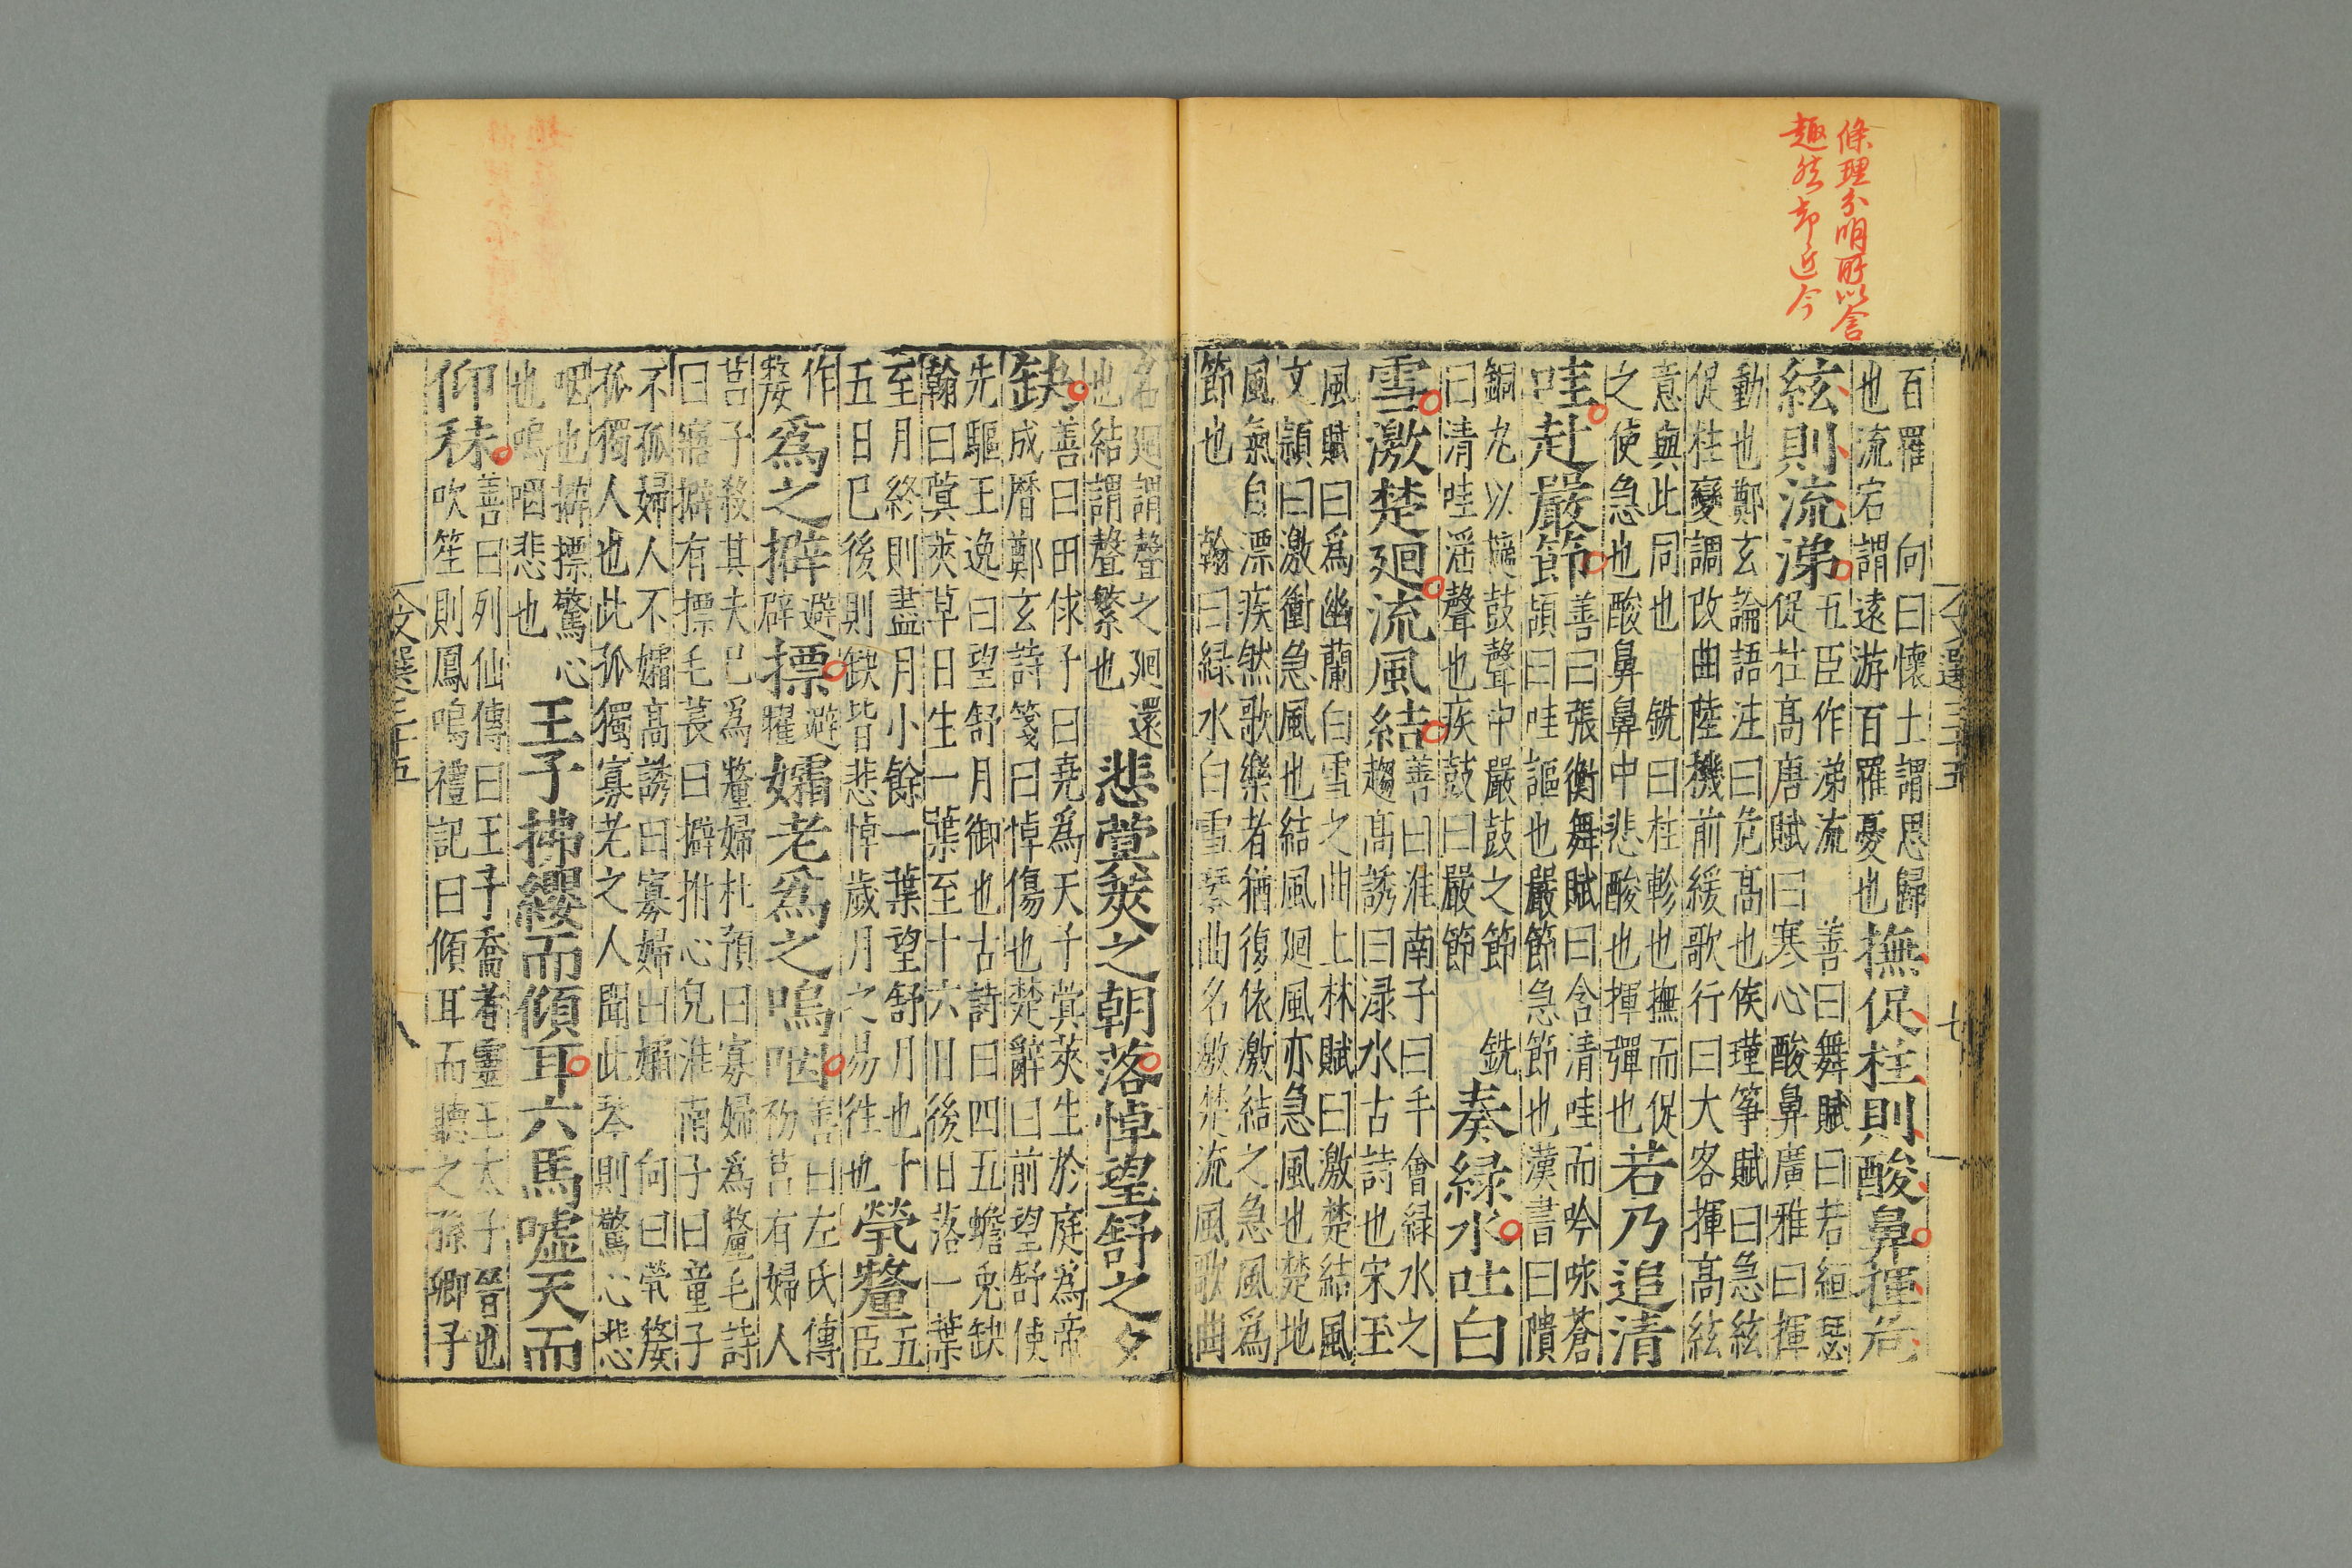 條理分明所以含
趣然却近今
文選三十五
七
百罹 向曰懷土謂思歸
也流宕謂遠游百罹憂也
撫促柱則酸鼻揮危
絃則流涕
五臣作涕流 善曰舞賦曰若絙瑟
促柱高唐賦曰寒心酸鼻廣雅曰揮
動也鄭玄論語注曰危高也侯瑾箏賦曰急絃
促柱變調改曲陸機前緩歌行曰大客揮高絃
意與此同也 銑曰柱軫也撫而促
之使急也酸鼻鼻中悲酸也揮彈也
若乃追清
哇赴嚴節
善曰張衡舞賦曰含清哇而吟咏蒼
頡曰哇謳也嚴節急節也漢書曰隤
銅丸以擿鼓聲中嚴鼓之節 銑
曰清哇淫聲也疾鼓曰嚴節
奏綠水吐白
雪激楚廻流風結
善曰淮南子曰手會綠水之
趨高誘曰淥水古詩也宋玉
風賦曰爲幽蘭白雪之曲上林賦曰激楚結風
文穎曰激衝急風也結風廻風亦急風也楚地
風氣自漂疾然歌樂者猶復依激結之急風爲
節也 翰曰綠水白雪琴曲名激楚流風歌曲
名廻謂聲之廻還
也結謂聲繁也
悲蓂莢之朝落悼望舒之夕
缺
善曰田俅子曰堯爲天子蓂莢生於庭爲帝
成曆鄭玄詩箋曰悼傷也楚辭曰前望舒使
先驅王逸曰望舒月御也古詩曰四五蟾兔缺
翰曰蓂莢草日生一葉至十六日後日落一葉
至月終則盡月小餘一葉望舒月也十五
五日已後則缺皆悲悼歲月之易徃也
煢嫠
五臣
作
嫠
爲之擗
避
辟
摽
避
曜
孀老爲之嗚咽
善曰左氏傳
初莒有婦人
莒子殺其夫已爲嫠婦杜預曰寡婦爲嫠毛詩
曰寤擗有摽毛萇曰擗拊心皃淮南子曰童子
不孤婦人不孀高誘曰寡婦曰孀 向曰煢嫠
孤獨人也此孤獨寡老之人聞此琴則驚心悲
咽也擗摽驚心
也嗚咽悲也
王子拂纓而傾耳六馬噓天而
仰秣
善曰列仙傳曰王子喬者靈王太子晉也
吹笙則鳳鳴禮記曰傾耳而聽之孫卿子
文選三十五
八